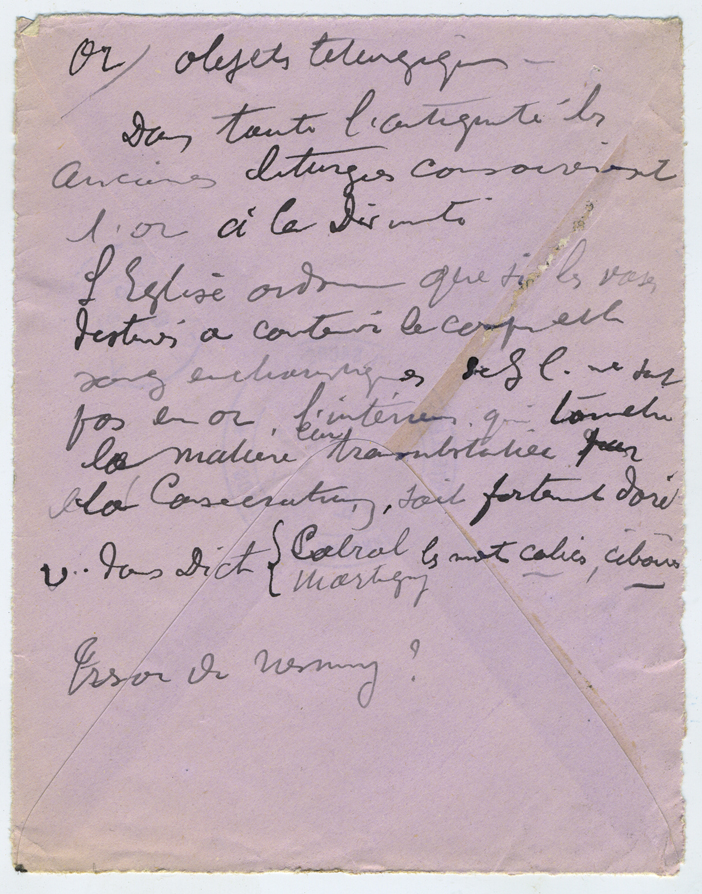 Or) objets liturgiques —
Dans toute l'antiquité les
anciennes liturgies consacrèrent
l'or à la Divinité
L'Eglise ordonne que si les vases
destinés a contenir le corps et le
sang eucharistiques de J. C. ne sont
pas en or, l'intérieur qui touche
la matière transubstantiée par
la Consécration, soit fortement doré
v. dans Dict { Cabrol les mots calices, ciboires
Martigny
Trésor de ?